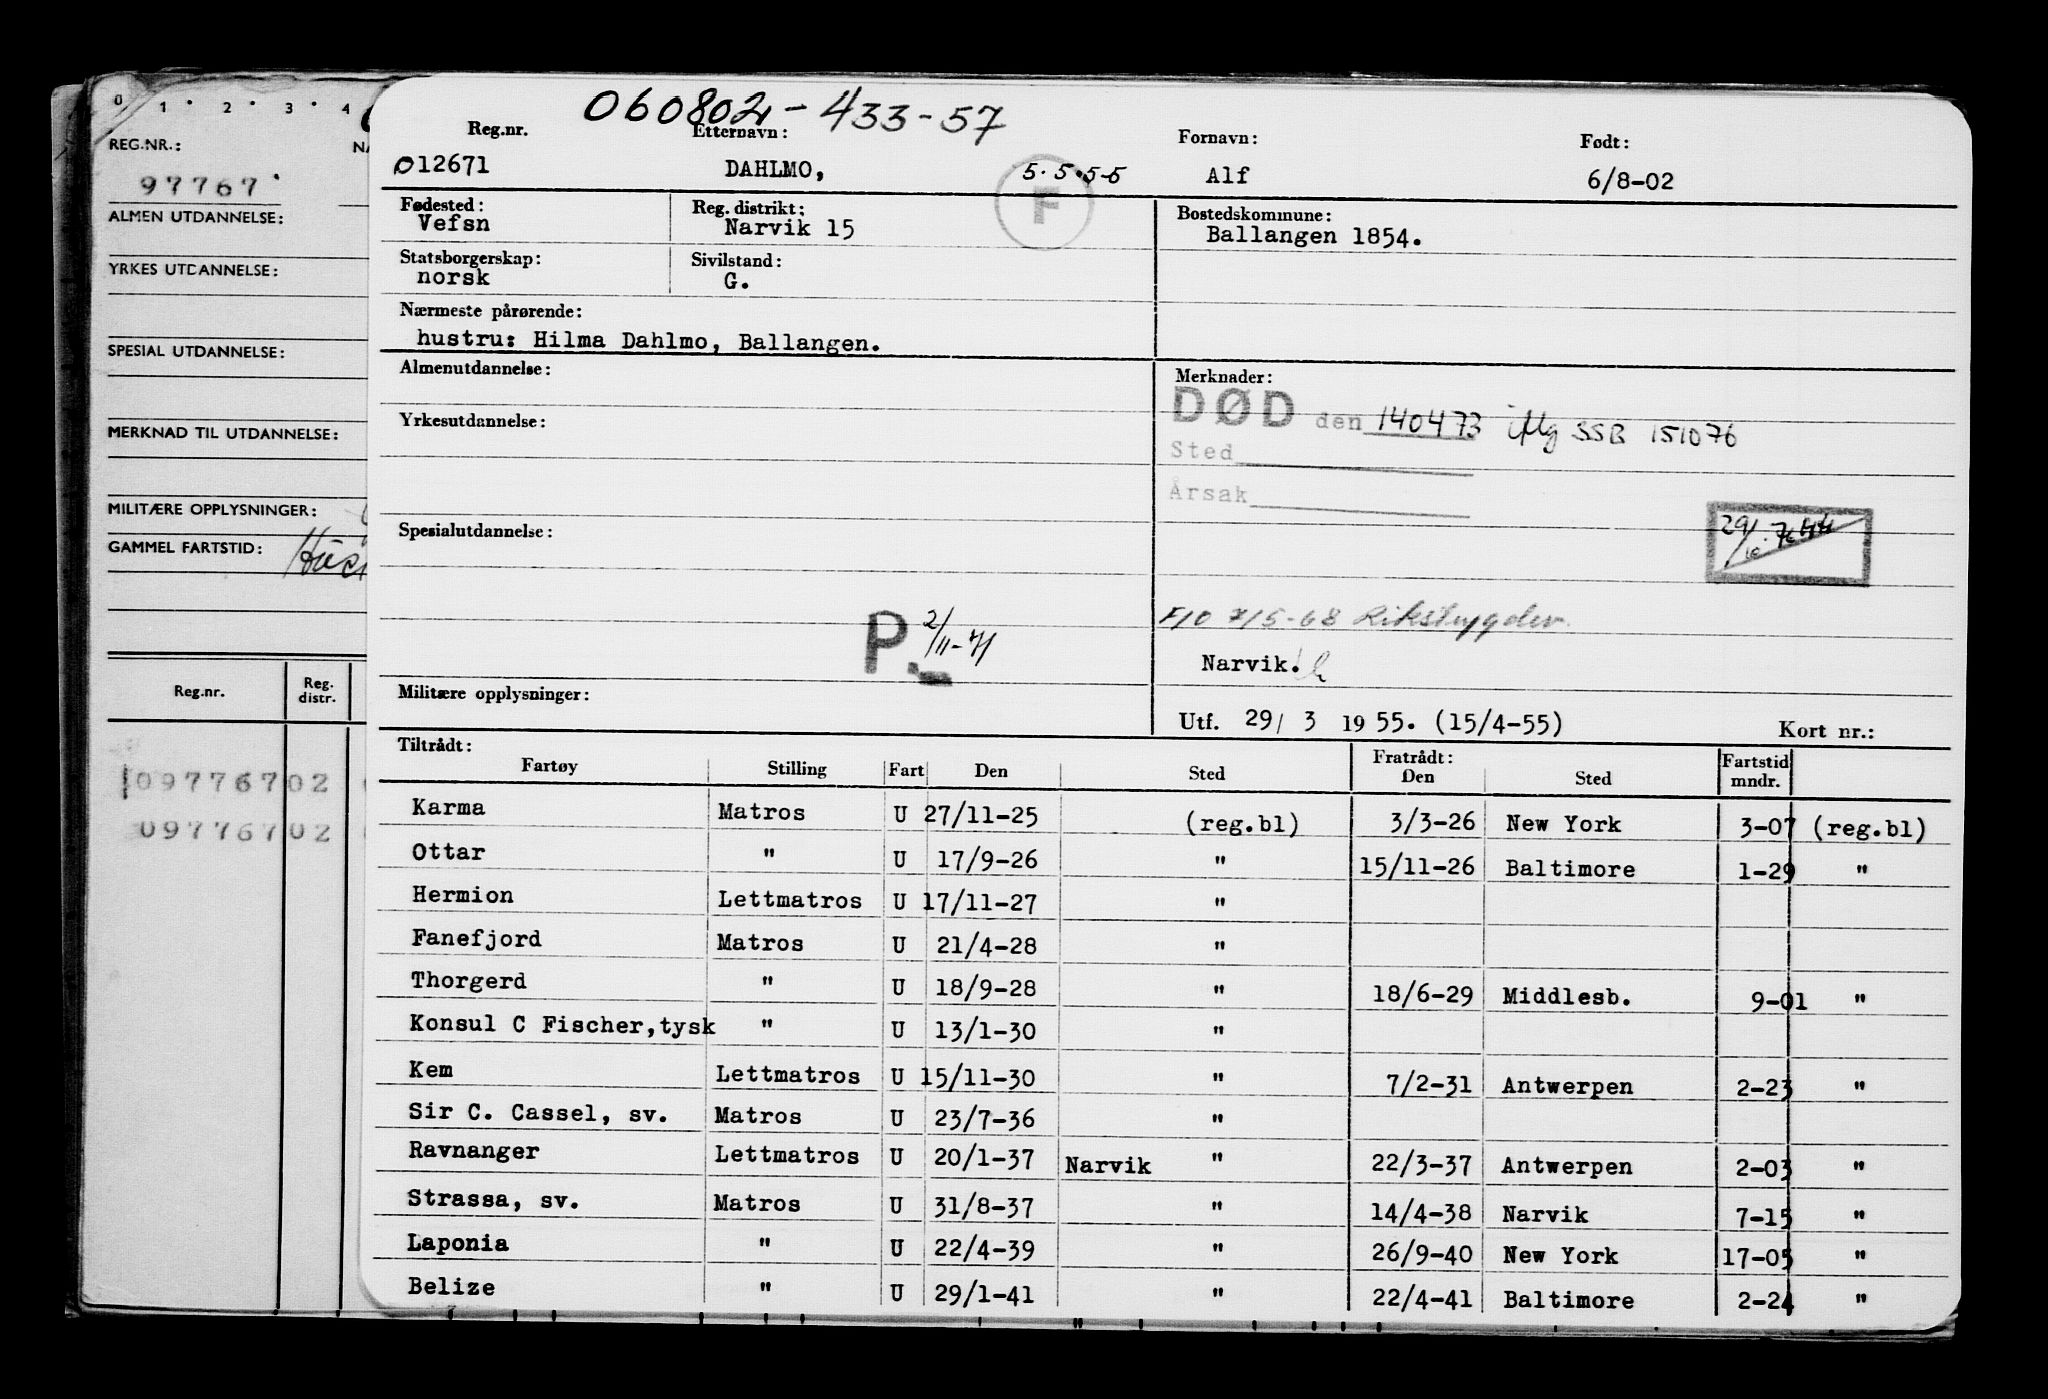 0 1 2 3 4
REG.NR.:
97767
ALMEN UTDANNELSE:
YRKES UTDANNELSE:
SPESIAL UTDANNELSE:
MERKNAD TIL UTDANNELSE:
MILITÆRE OPPLYSNINGER:
GAMMEL FARTSTID:
Reg.nr. Reg. distr.
09776702
09776702
060802-433-57
Reg.nr. Etternavn: Fornavn: Født:
012671 DAHLMO, 5.5.55 Alf 6/8-02
F
Fødested: Reg. distrikt: Bostedskommune:
Vefsn Narvik 15 Ballangen 1854.
Statsborgerskap: Sivilstand:
norsk G.
Nærmeste pårørende:
hustru: Hilma Dahlmo, Ballangen.
Almenutdannelse: Merknader:
DØD den 140473 iflg SSB 151076
Yrkesutdannelse:
Sted
Årsak
Spesialutdannelse:
29/10-76
F/O 7/5-68 Rikstrygdev.
P. 2/11-71
Narvik.
Militære opplysninger:
Utf. 29/ 3 1955. (15/4-55) Kort nr.:
Tiltrådt: Fratrådt: Fartstid
Fartøy Stilling Fart Den Sted Den Sted mndr.
Karma Matros U 27/11-25 (reg.bl) 3/3-26 New York 3-07 (reg.bl)
Ottar " U 17/9-26 " 15/11-26 Baltimore 1-29 "
Hermion Lettmatros U 17/11-27 "
Fanefjord Matros U 21/4-28 "
Thorgerd " U 18/9-28 " 18/6-29 Middlesb. 9-01 "
Konsul C Fischer,tysk " U 13/1-30 "
Kem Lettmatros U 15/11-30 " 7/2-31 Antwerpen 2-23 "
Sir C. Cassel, sv. Matros U 23/7-36 "
Ravnanger Lettmatros U 20/1-37 Narvik " 22/3-37 Antwerpen 2-03 "
Strassa, sv. Matros U 31/8-37 " 14/4-38 Narvik 7-15 "
Laponia " U 22/4-39 " 26/9-40 New York 17-05 "
Belize " U 29/1-41 " 22/4-41 Baltimore 2-24 "